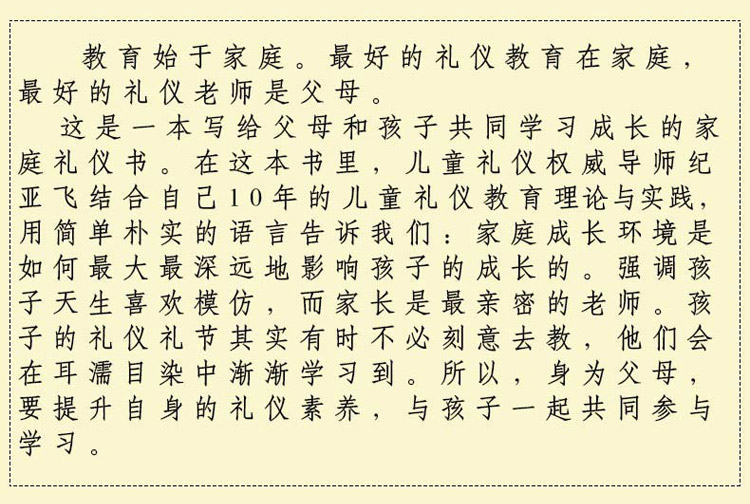 教育始于家庭。最好的礼仪教育在家庭,
最好的礼仪老师是父母。
这是一本写给父母和孩子共同学习成长的家
庭礼仪书。在这本书里,儿童礼仪权威导师纪
亚飞结合自己10年的儿童礼仪教育理论与实践,
用简单朴实的语言告诉我们：家庭成长环境是
如何最大最深远地影响孩子的成长的。强调孩
子天生喜欢模仿,而家长是最亲密的老师。孩
子的礼仪礼节其实有时不必刻意去教,他们会
在耳濡目染中渐渐学习到。所以,身为父母,
要提升自身的礼仪素养,与孩子一起共同参与
学习。